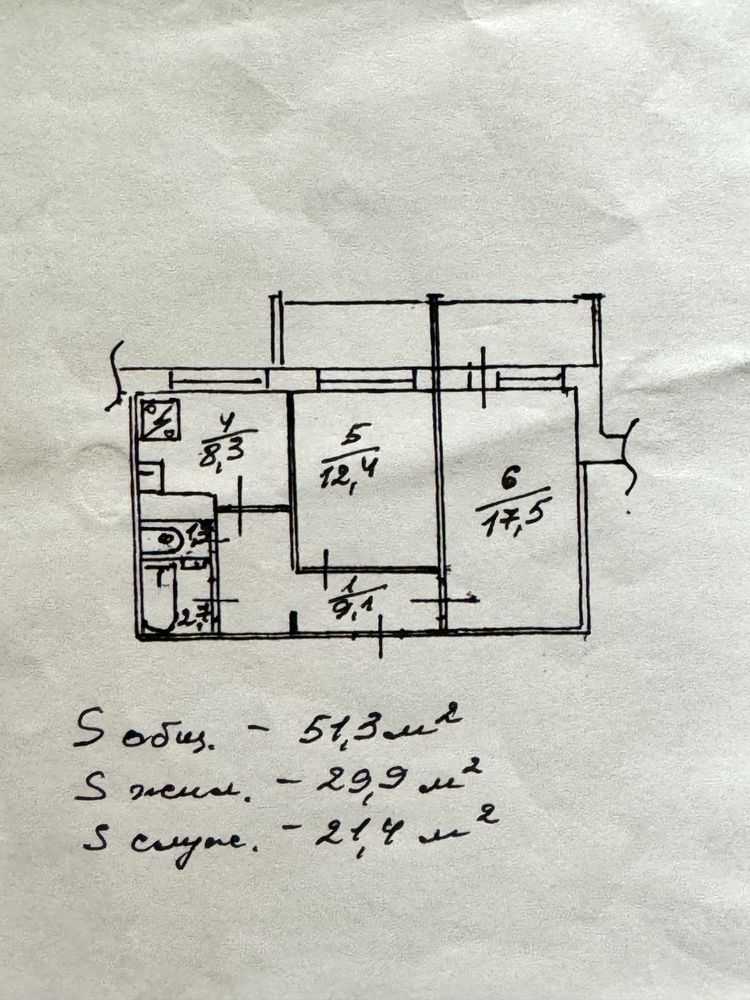 4
8,3
5
12,4
6
17,5
1,3
1
9,1
2,7
S общ. - 51,3 м²
S жил. - 29,9 м²
S служ. - 21,4 м²